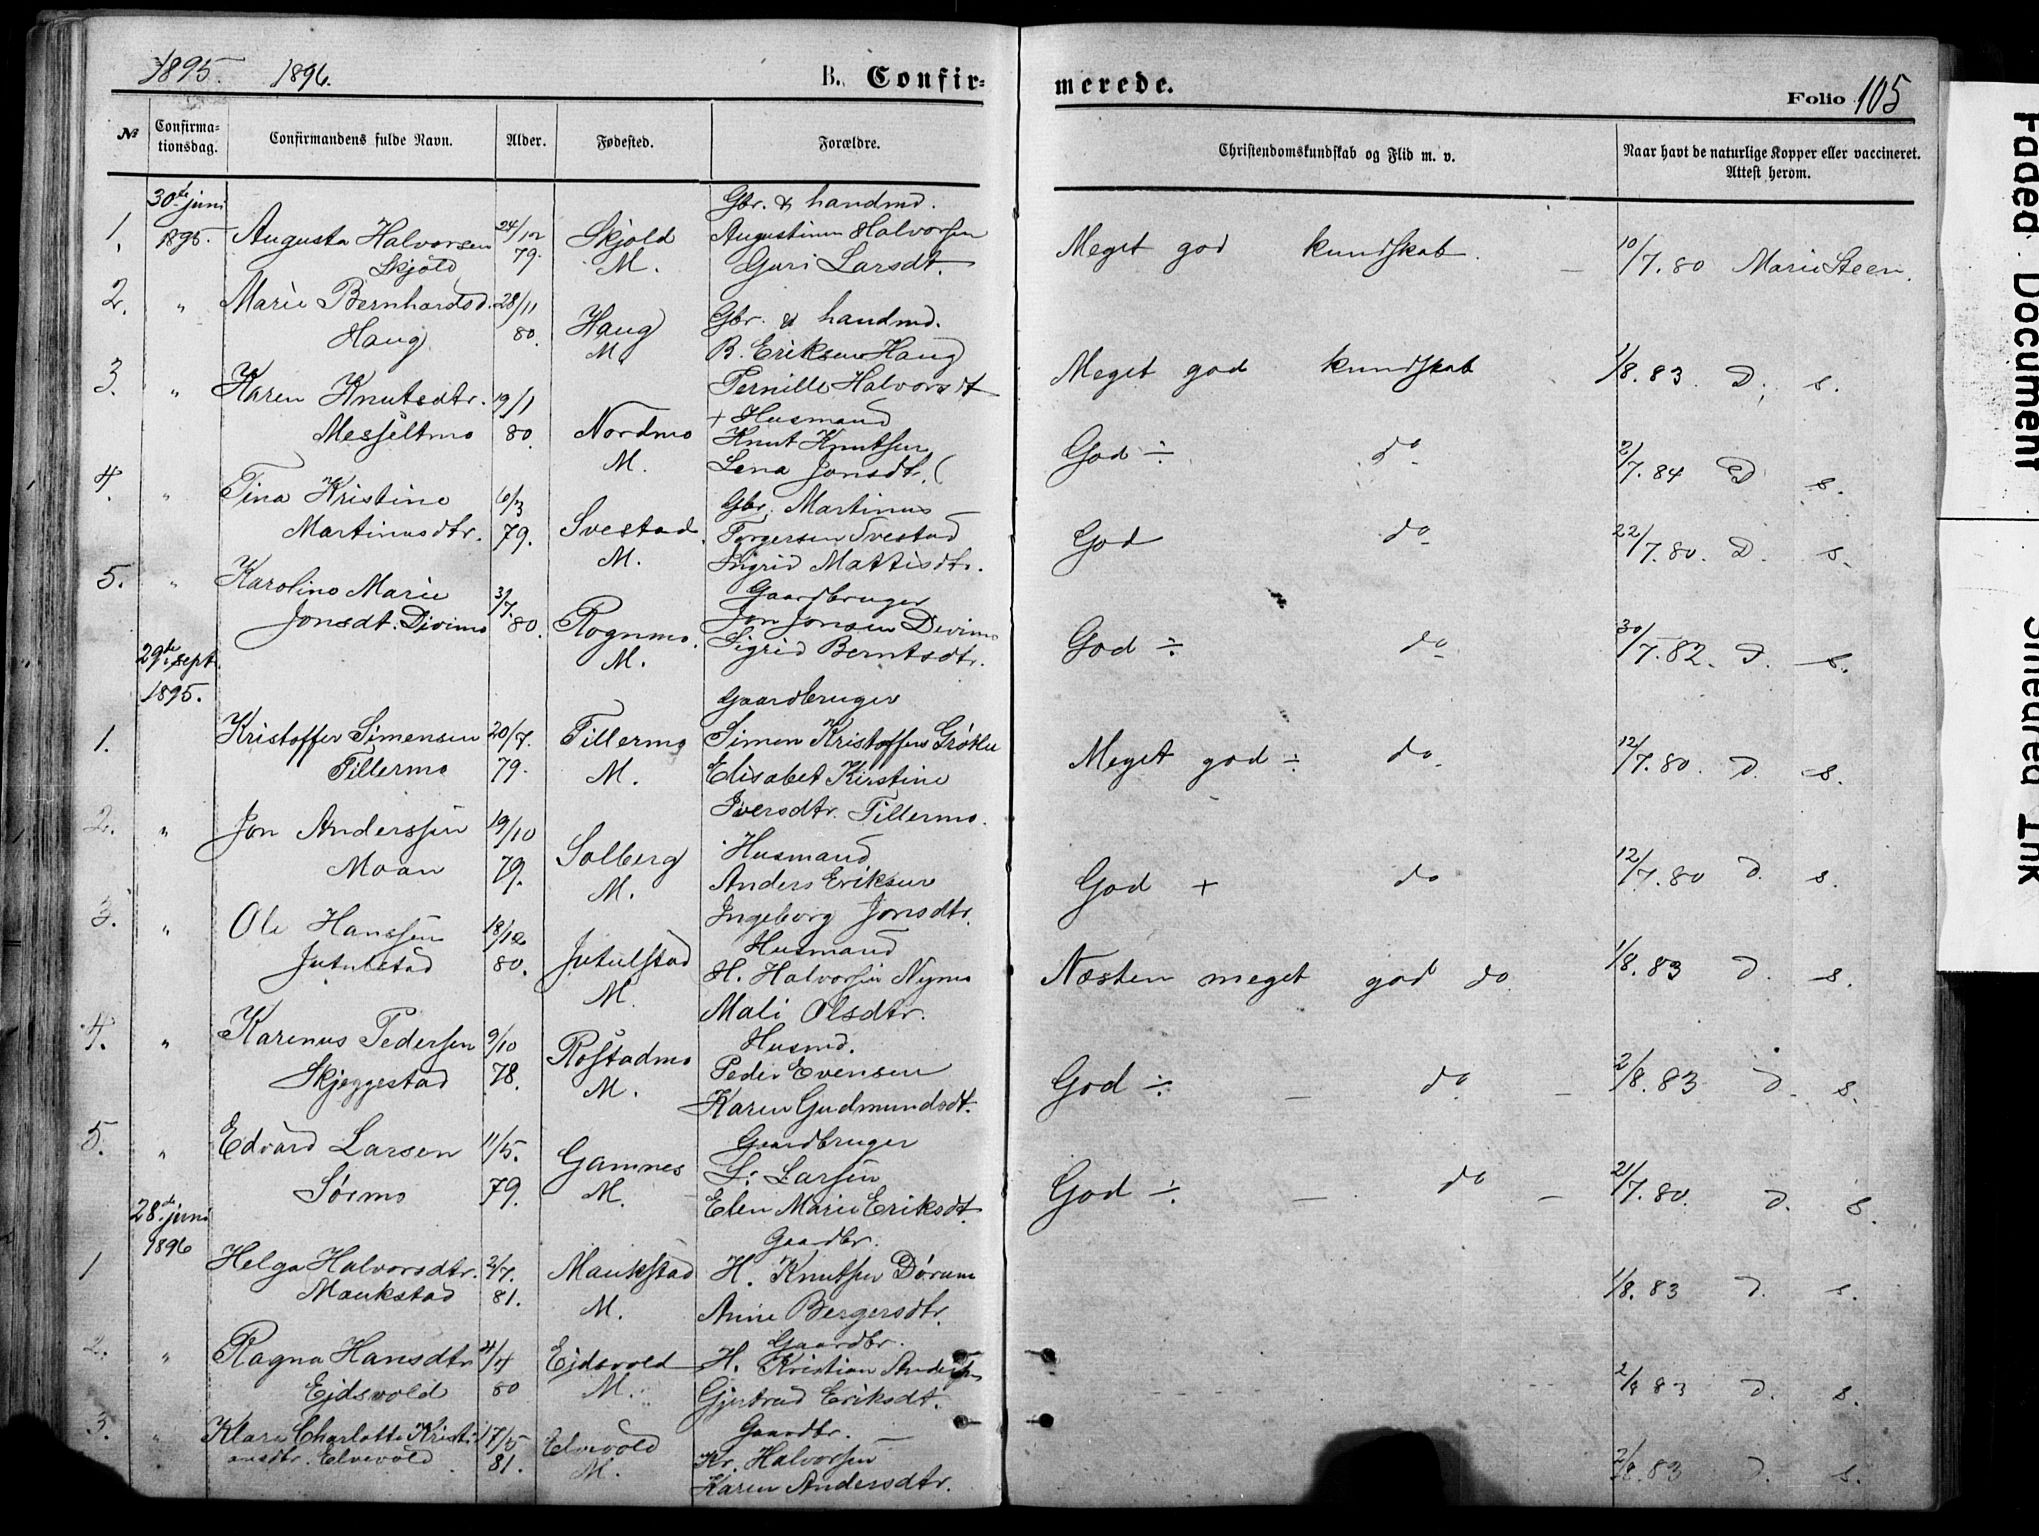 1895. 1896. B. Confir= merede. Folio 105
№ Confirma-tionsdag. Confirmandens fulde Navn. Alder. Fødested. Forældre. Christendomskundskab og Flid m. v. Naar havt de naturlige Kopper eller vaccineret. Attest herom.
30te juni Gbr. & handmd.
1. 1895. Augusta Halvorsen 24/12 Skjold Augustinus Halvorsen Meget god kundskab. 10/7.80 Marie Steen.
Skjold 79. M. Guri Larsdt.
2. " Marie Bernhardsd. 28/11 Haug Gbr. & handmd.
Haug 80. M. B. Eriksen Haug Meget god kundskab 1/8.83 D. s.
3. " Karen Knutsdtr. 19/1 Pernille Halvorsdt
+ Husmand
Messeltmo 80. Nordmo Knut Knutsen God ÷ do 2/7.84 D s.
M. Lena Jonsdt.
4. " Tina Kristine 6/3 Gbr. Martinus
Martinusdtr. 79. Svestad Torgersen Svestad God do 22/7.80. D. s.
M. Ingrid Mattisdtr.
5. " Karoline Marie Gaardbruger
Jonsdt. Divimo /7.80. Rognmo. Jon Jonsen Divimo God ÷ do 30/7.82. D. s.
M. Sigrid Berntsdtr.
29de sept.
1895. Gaardbruger
1. Kristoffer Simensen 20/7. Tillermo Simen Kristoffers Meget god ÷ do. 12/7.80. D. s.
Tillermo 79. M. Elisabet Kirstine
Iversdtr. Tillermo.
2. " Jon Anderssen 19/10 Solberg Husmand
Moan 79. M. Anders Eriksen God + do 12/7.80 D. s.
Ingeborg Jonsdtr.
3. " Ole Hanssen 18/12 Jutulstad Husmand
Jutulstad 80. M. H. Halvorsen Nymo Næsten meget god do. 1/8.83 D. s.
Mali Olsdtr.
4. " Karenus Pedersen 9/10 Rostadmo Husmd.
Skjeggestad 78. M. Peder Evensen God ÷ do 2/8.83 D. s.
Karen Gudmundsdt.
5. " Edvard Larsen 11/5. Gamnes Gaardbruger
Sørmo 79. M. L. Larsen God ÷. do 21/7.80. D. s.
Elen Marie Eriksdt.
28de juni Gaardbr.
1 1896 Helga Halvorsdtr. 2/7. Maukstad H. Knutsen Dørum 1/8.83 D. s.
Maukstad 81. M. Anne Bergersdtr.
2. " Ragna Hansdtr /4 Ejdsvold Gaardbr.
H. Kristian Andersen
Ejdsvold 80 M. Gjertrud Eriksdt. 2/8 83 D. s.
3. " Klara Charlotte Kristi- 17/5 Elvevold Gaardbr.
ansdtr. Elvevold 81. M. Kr. Halvorsen 2/8.83 D. s.
Karen Andersdtr.
Faded Document
Smeared Ink